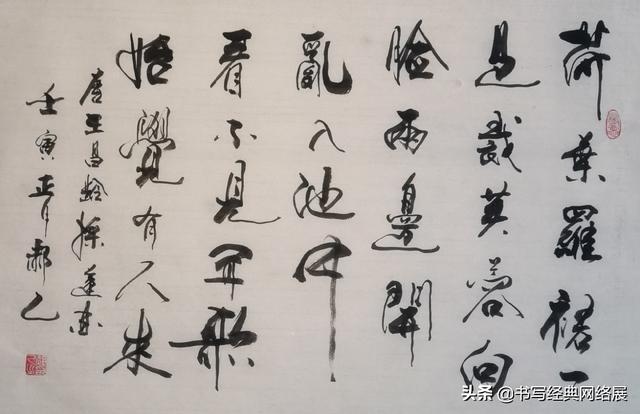 荷葉羅裙一
色裁芙蓉向
臉兩邊開
亂入池中
看不見聞歌
始覺有人來
唐王昌齡採蓮曲
壬寅正月郝乙
头条 @书写经典网络展